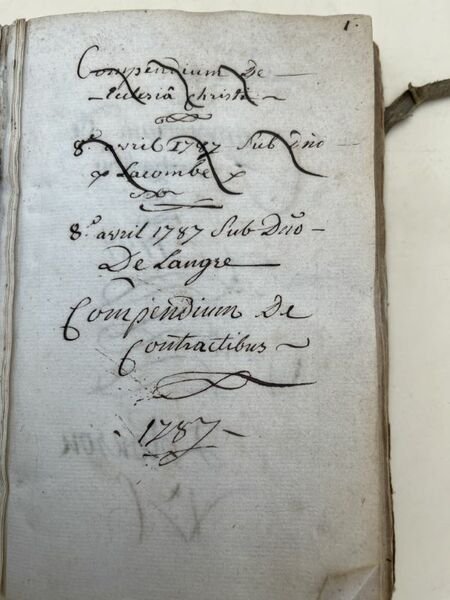 1.
Compendium De
Eclesiâ Christi
8.° avril 1787 Sub Dno
Lacombe
8.° avril 1787 Sub Dno
De Langre
Compendium De
Contractibus
1787